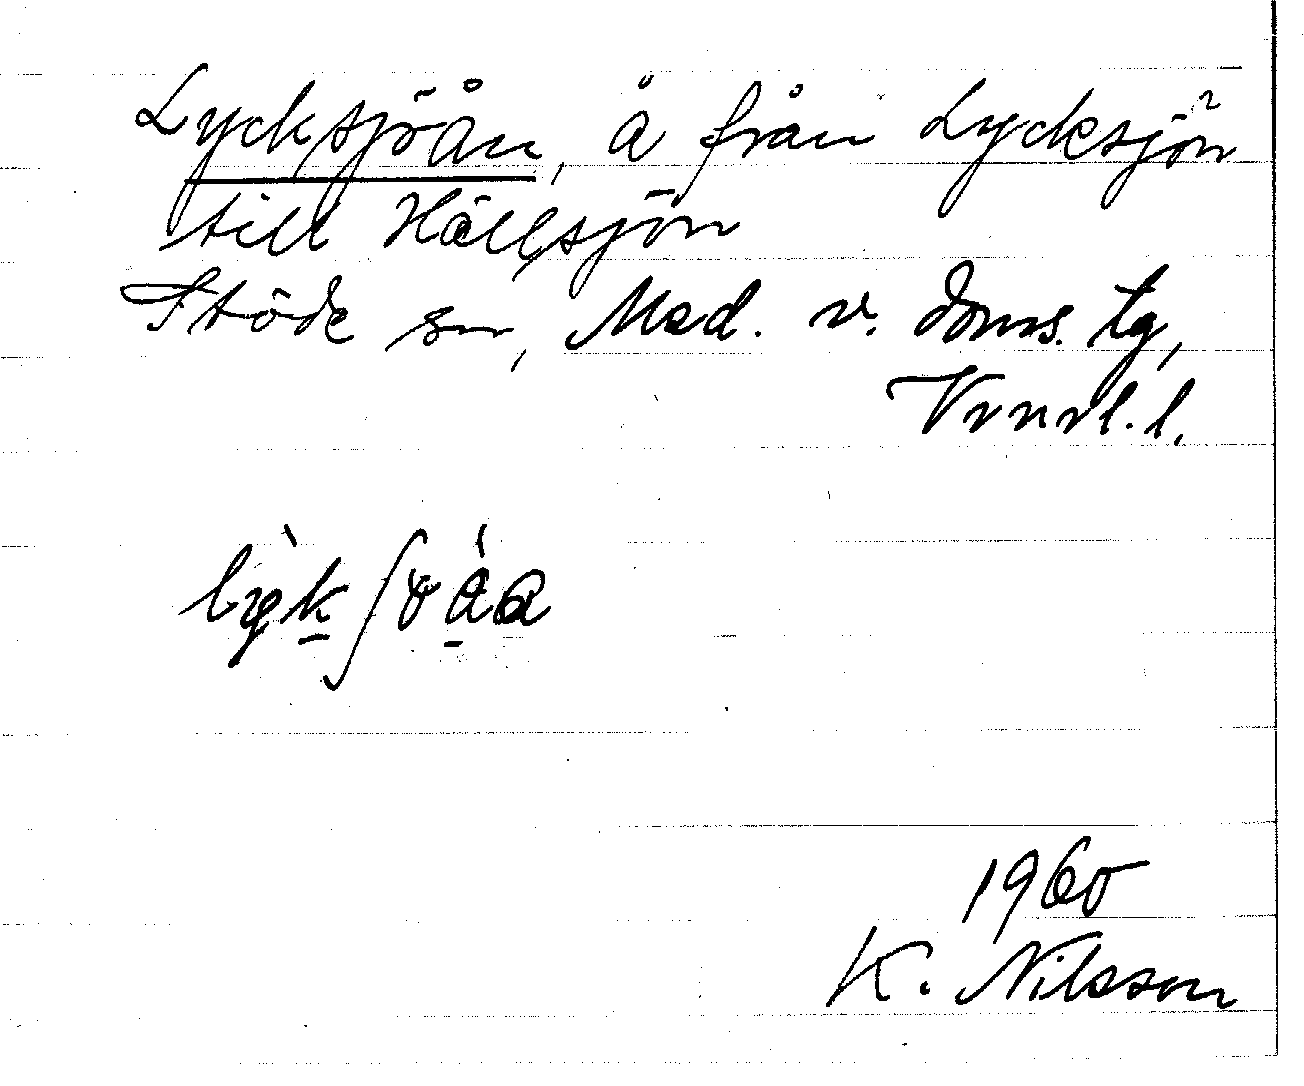 Lycksjöån, å från Lycksjön
till Hällsjön
Stöde sn, Med. v. doms. tg,
Vrnrl. l.
1960
K. Nilsson